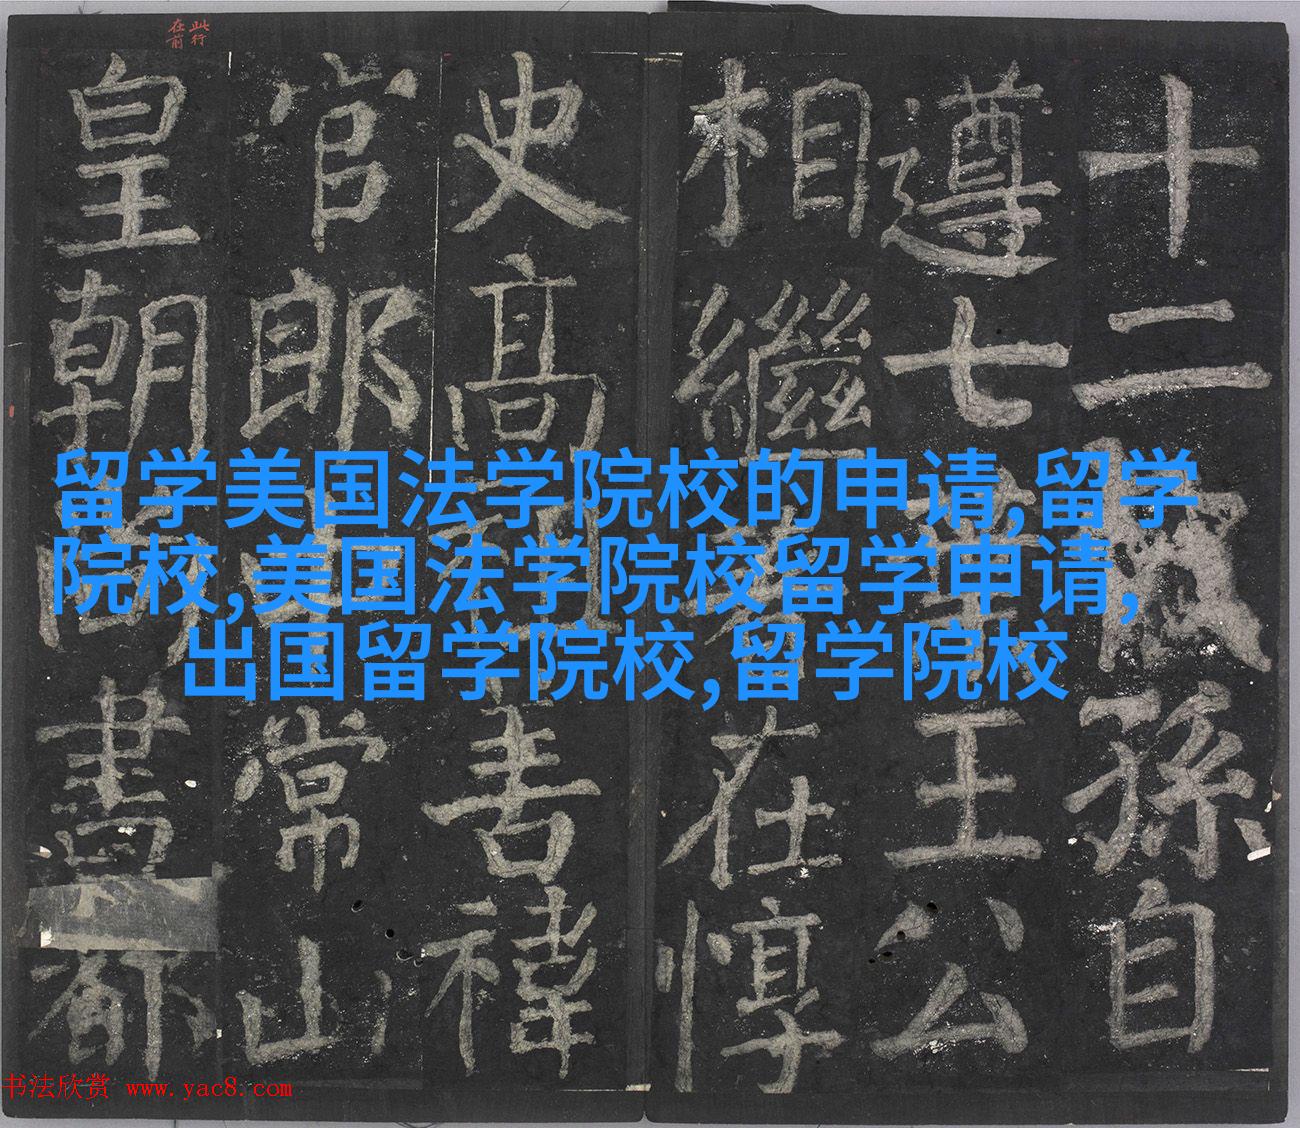 此行
在前
十二孫自
遵七王公
相繼在惇
史高善禕
官郎常山
皇朝書都
留学美国法学院校的申请,留学
院校,美国法学院校留学申请,
出国留学院校,留学院校
书法欣赏 www.yac8.com